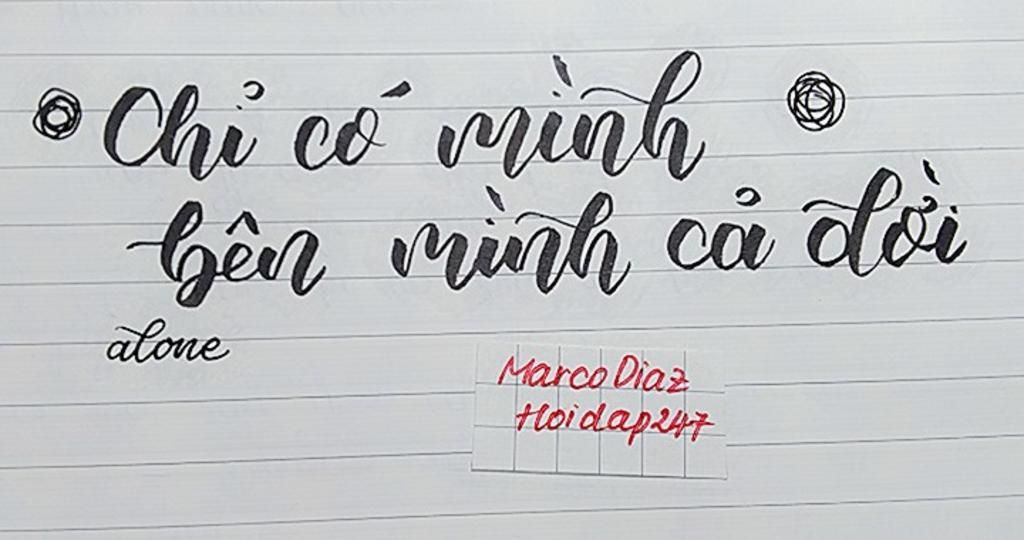 Chỉ có mình
bên mình cả đời
alone
Marco Diaz
Hoidap247